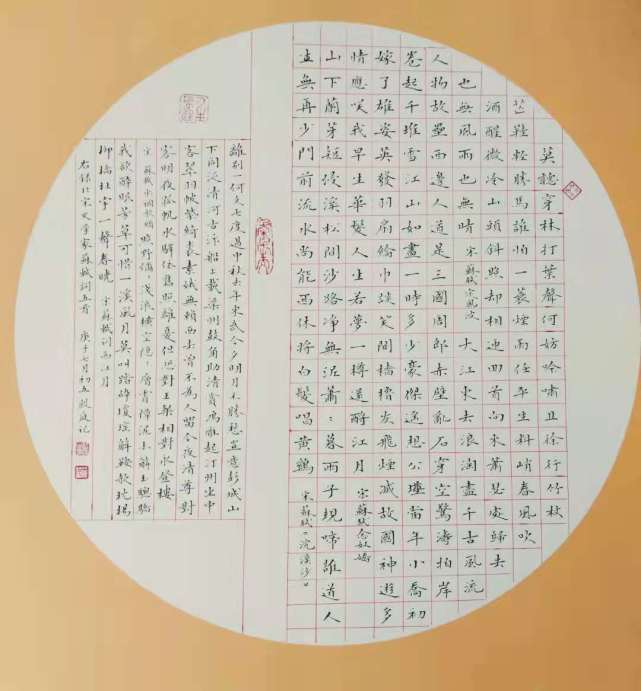 莫聽穿林打葉聲何妨吟嘯且徐行竹杖
芒鞋輕勝馬誰怕一蓑煙雨任平生料峭春風吹
酒醒微冷山頭斜照却相迎回首向來蕭瑟處歸去
也無風雨也無晴 宋蘇軾定風波 大江東去浪淘盡千古風流
人物故壘西邊人道是三國周郎赤壁亂石穿空驚濤拍岸
卷起千堆雪江山如畫一時多少豪傑遙想公瑾當年小喬初
嫁了雄姿英發羽扇綸巾談笑間檣櫓灰飛煙滅故國神遊多
情應笑我早生華髮人生若夢一樽還酹江月 宋蘇軾念奴嬌
山下蘭芽短浸溪松間沙路净無泥蕭蕭暮雨子規啼誰道人
生無再少門前流水尚能西休將白髮唱黃鷄 宋蘇軾浣溪沙
離別一何久七度過中秋去年東武今夕明月不勝愁豈意彭城山
下同泛清河古汴船上載涼州鼓角助清賞鴻雁起汀州坐中
客翠羽帔紫綺裘素娥無賴西去曾不為人留今夜清尊對
客明夜孤帆水驛依舊照離憂但恐對王粲相對永登樓
宋蘇軾水調歌頭 照野彌彌淺浪橫空隱隱層霄障泥未解玉驄驕
我欲醉眠芳草可惜一溪風月莫叫踏碎瓊瑤解鞍欹枕楊
柳橋杜宇一聲春曉 宋蘇軾詞西江月
右錄北宋文學家蘇軾詞五首 庚子七月初五記